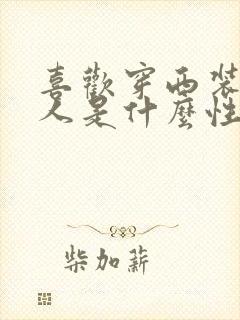 喜歡穿西裝
人是什麼性
柴加薪